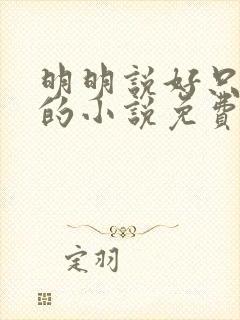 明明説好只
的小説免費
定羽